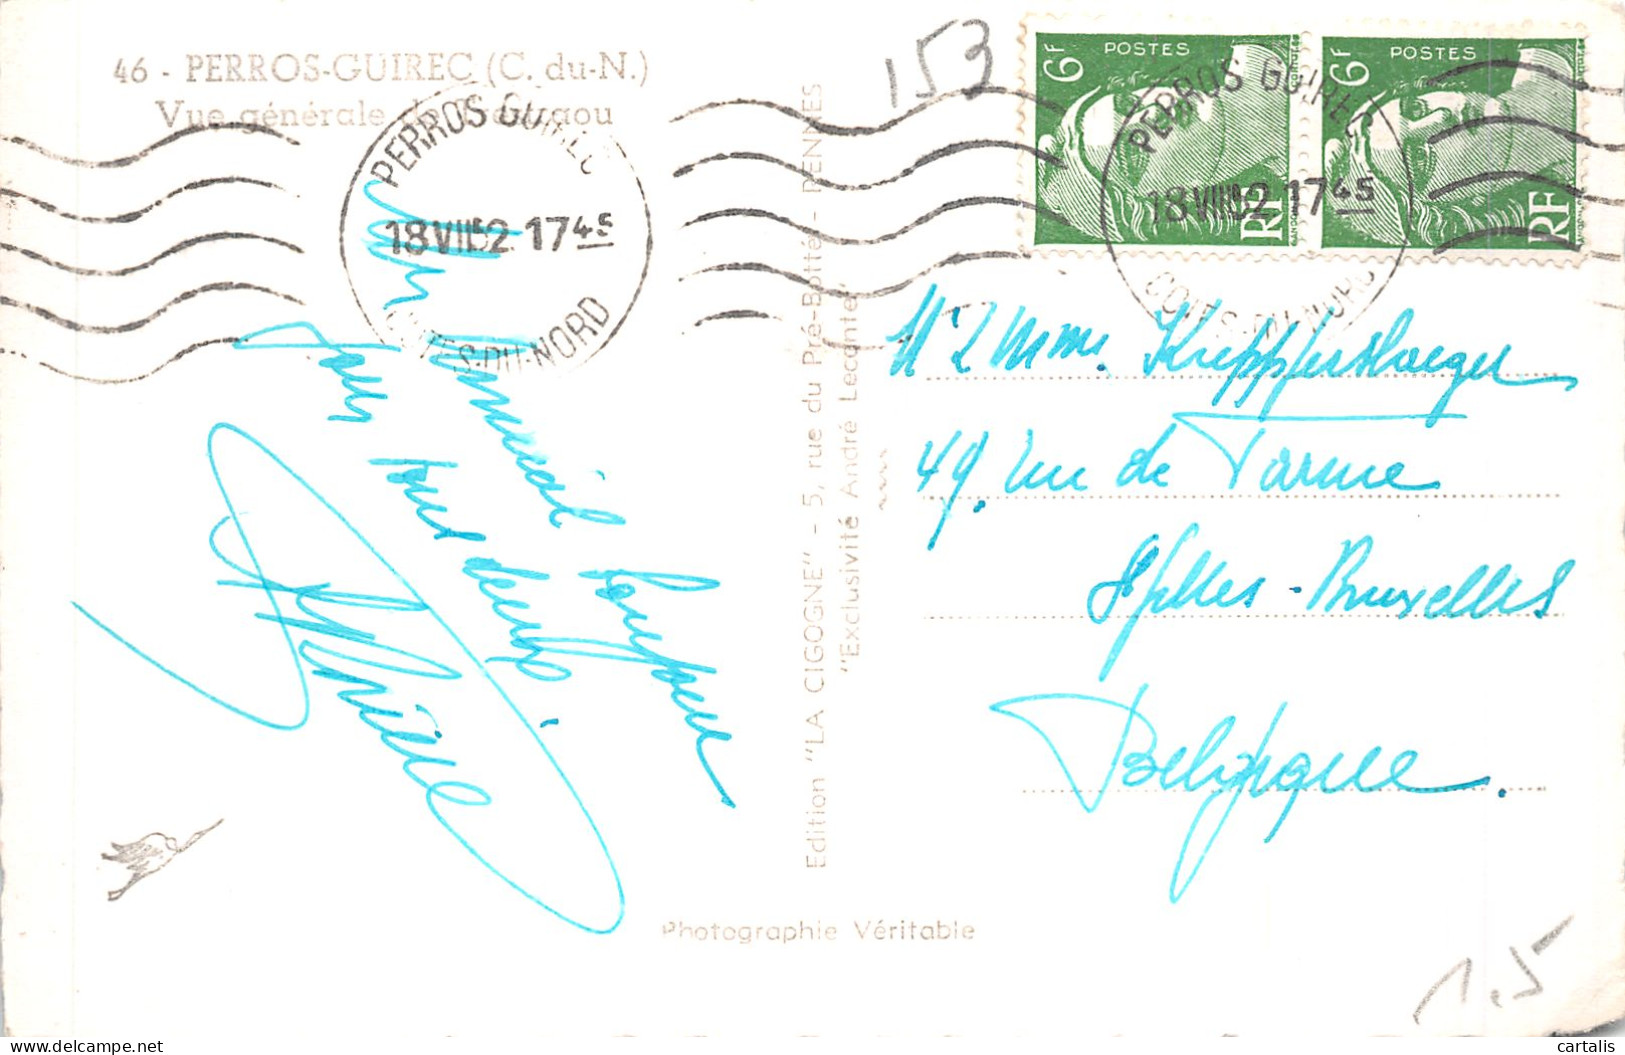 46 - PERROS-GUIREC (C. du-N.)
Vue générale de
PERROS GUIREC
18 VII 52 17 45
COTES-DU-NORD
153
6F POSTES RF
6F POSTES RF
PERROS GUIREC
18 VII 52 17 45
COTES-DU-NORD
Un amical bonjour
pour tout deux.
Edition "LA CIGOGNE" - 5, rue du Pré-Botté - RENNES
"Exclusivité André Leconte"
Mme.
49, rue de Parme
Bruxelles
Belgique.
Photographie Véritable
1,5
cartalis